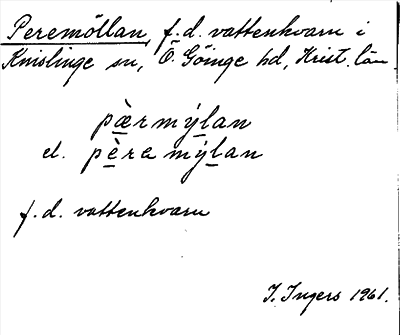 Peremöllan, f.d. vattenkvarn i
Knislinge sn, Ö. Göinge hd, Krist. län.
pæ̀rmýlan
el. pèremýlan
f.d. vattenkvarn
I. Ingers 1961.